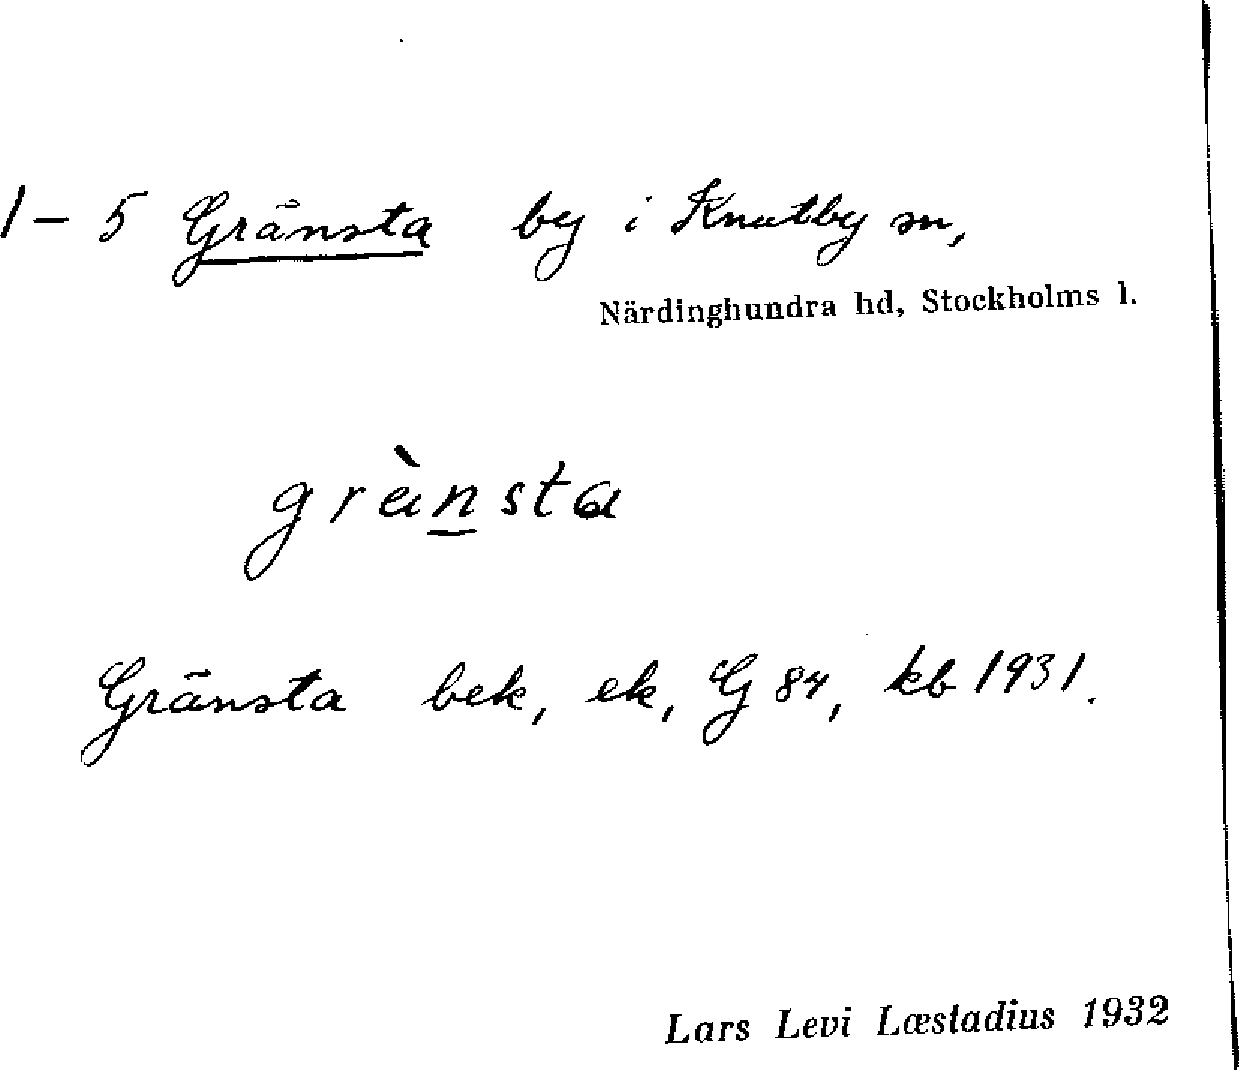 1-5 Gränsta by i Knutby sn,
Närdinghundra hd, Stockholms l.
grànsta
Gränsta bek, ek, G 84, kb 1931.
Lars Levi Læstadius 1932